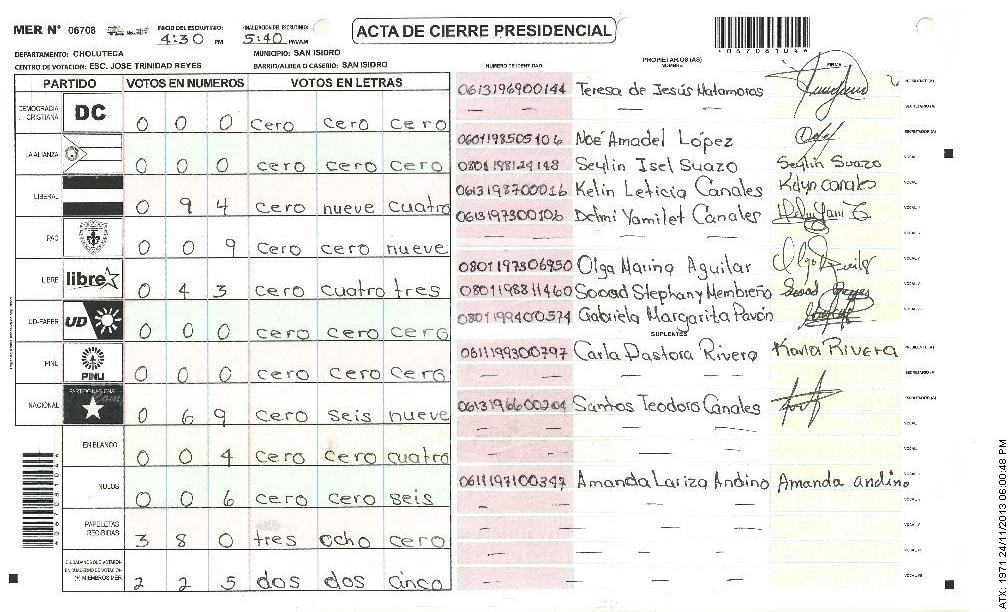 MER Nº 06708 INICIO DEL ESCRUTINIO: 4:30 PM FINALIZACION DEL ESCRUTINIO: 5:40 PM/AM ACTA DE CIERRE PRESIDENCIAL
DEPARTAMENTO: CHOLUTECA MUNICIPIO: SAN ISIDRO
CENTRO DE VOTACION: ESC. JOSE TRINIDAD REYES BARRIO/ALDEA O CASERIO: SAN ISIDRO
NUMERO DE IDENTIDAD PROPIETARIOS (AS) NOMBRE FIRMA
PARTIDO VOTOS EN NUMEROS VOTOS EN LETRAS
DEMOCRACIA CRISTIANA DC 0 0 0 cero cero cero
LA ALIANZA 0 0 0 cero cero cero
LIBERAL 0 9 4 cero nueve cuatro
PAC 0 0 9 cero cero nueve
LIBRE libre 0 4 3 cero cuatro tres
UD-FAPER UD 0 0 0 cero cero cero
PINU PINU 0 0 0 cero cero cero
NACIONAL PARTIDO NACIONAL 0 6 9 cero seis nueve
EN BLANCO 0 0 4 cero cero cuatro
NULOS 0 0 6 cero cero seis
PAPELETAS RECIBIDAS 3 8 0 tres ocho cero
CIUDADANOS QUE VOTARON EN CUADERNO DE VOTACION (+) MIEMBROS MER 2 2 5 dos dos cinco
0613196900144 Teresa de Jesús Matamoros PRESIDENTE (A)
SECRETARIO (A)
0601198505106 Noé Amadel López ESCRUTADOR (A)
0801198124148 Seylin Isel Suazo Seylin Suazo VOCAL
0613198700016 Kelin Leticia Canales Kelyn canales VOCAL
0613197300106 Delmi Yamilet Canales VOCAL
0801197306950 Olga Marina Aguilar
0801198811460 Sooad Stephany Membreño
0801199400574 Gabriela Margarita Pavón
SUPLENTES
0611199300797 Carla Pastora Rivera Karla Rivera PRESIDENTE (A)
SECRETARIO (A)
0613196600204 Santos Teodoro Canales ESCRUTADOR (A)
0611197100347 Amanda Lariza Andino Amanda andino
ATX: 1971 24/11/2013 06:00:48 PM